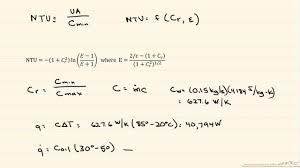 NTU = UA / Cmin    NTU = f(Cr, ε)
NTU = −(1 + Cr²) ln((E − 1)/(E + 1)) where E = (2/ε − (1 + Cr))/(1 + Cr²)^1/2
Cr = Cmin / Cmax    C = ṁc    Cw = (0.15 kg/s)(4184 J/kg·K)
= 627.6 W/K
q = CΔT = 627.6 W/K (85° − 20°C) = 40,794 W
q̇ = Coil (30° − 5°)